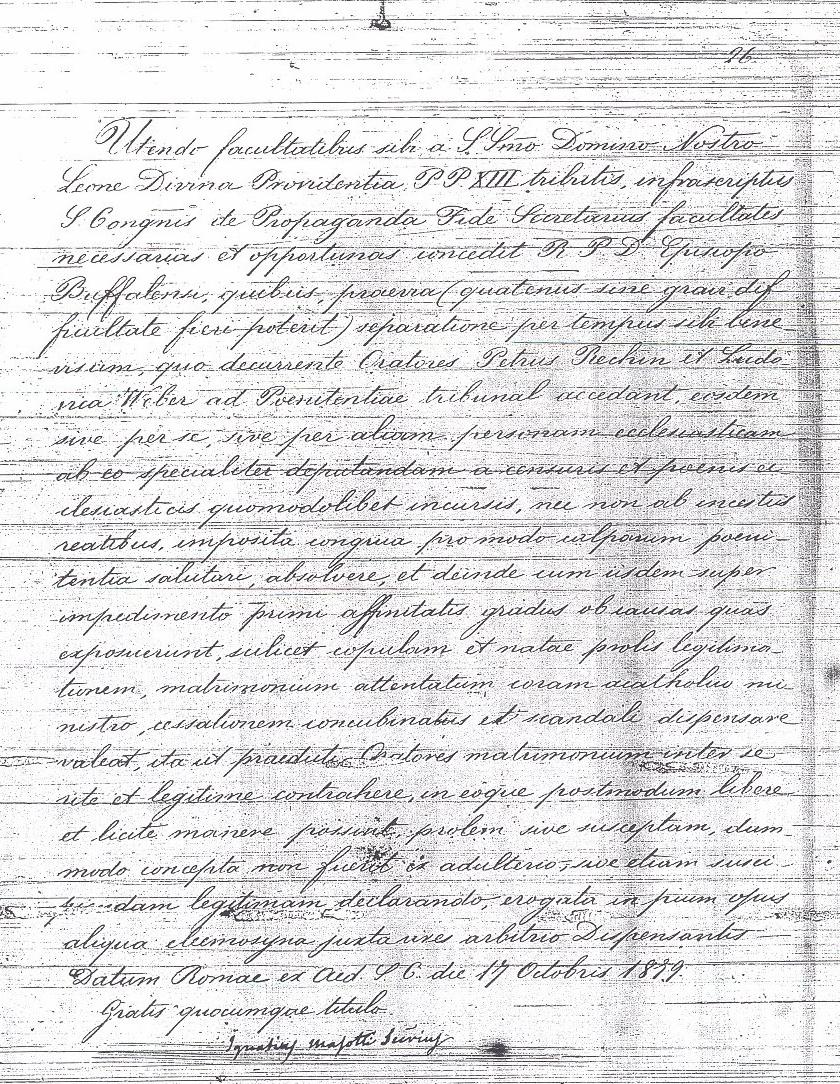 26.
Utendo facultatibus sibi a S. Smo Domino Nostro
Leone Divina Providentia P P XIII tributis, infrascriptus
S. Congnis de Propaganda Fide Secretarius facultates
necessarias et opportunas concedit R P D Episcopo
Buffalensi, quibus, praevia (quatenus sine gravi dif
ficultate fieri poterit) separatione per tempus sibi bene
visum, quo decurrente Oratores Petrus Rechin et Ludo
vica Weber ad Poenitentiae tribunal accedant, eosdem
sive per se, sive per aliam personam ecclesiasticam
ab eo specialiter deputandam a censuris et poenis ec
clesiasticis quomodolibet incursis, nec non ab incestus
reatibus, imposita congrua pro modo culparum poeni-
tentia salutari, absolvere, et deinde cum iisdem super
impedimento primi affinitatis gradus ob causas quas
exposuerunt, scilicet copulam et natae prolis legitima-
tionem, matrimonium attentatum coram acatholico mi-
nistro, cessationem concubinatus et scandali dispensare
valeat, ita ut praedicti Oratores matrimonium inter se
rite et legitime contrahere, in eoque postmodum libere
et licite manere possint, prolem sive susceptam, dum-
modo concepta non fuerit ex adulterio, sive etiam susci
piendam legitimam declarando, erogata in pium opus
aliqua eleemosyna juxta vires arbitrio Dispensantis
Datum Romae ex Aed. S C. die 17 Octobris 1889
Gratis quocumque titulo
Ignatius Masotti